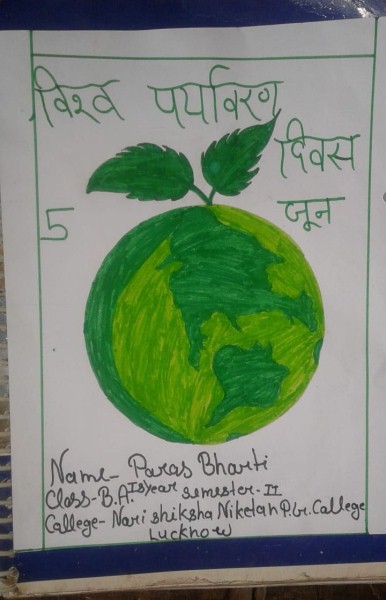 विश्व पर्यावरण
दिवस
5 जून
Name- Paras Bharti
Class- B.A Ist year semester- II
Callege- Nari shiksha Niketan P.G. Callege
Lucknow